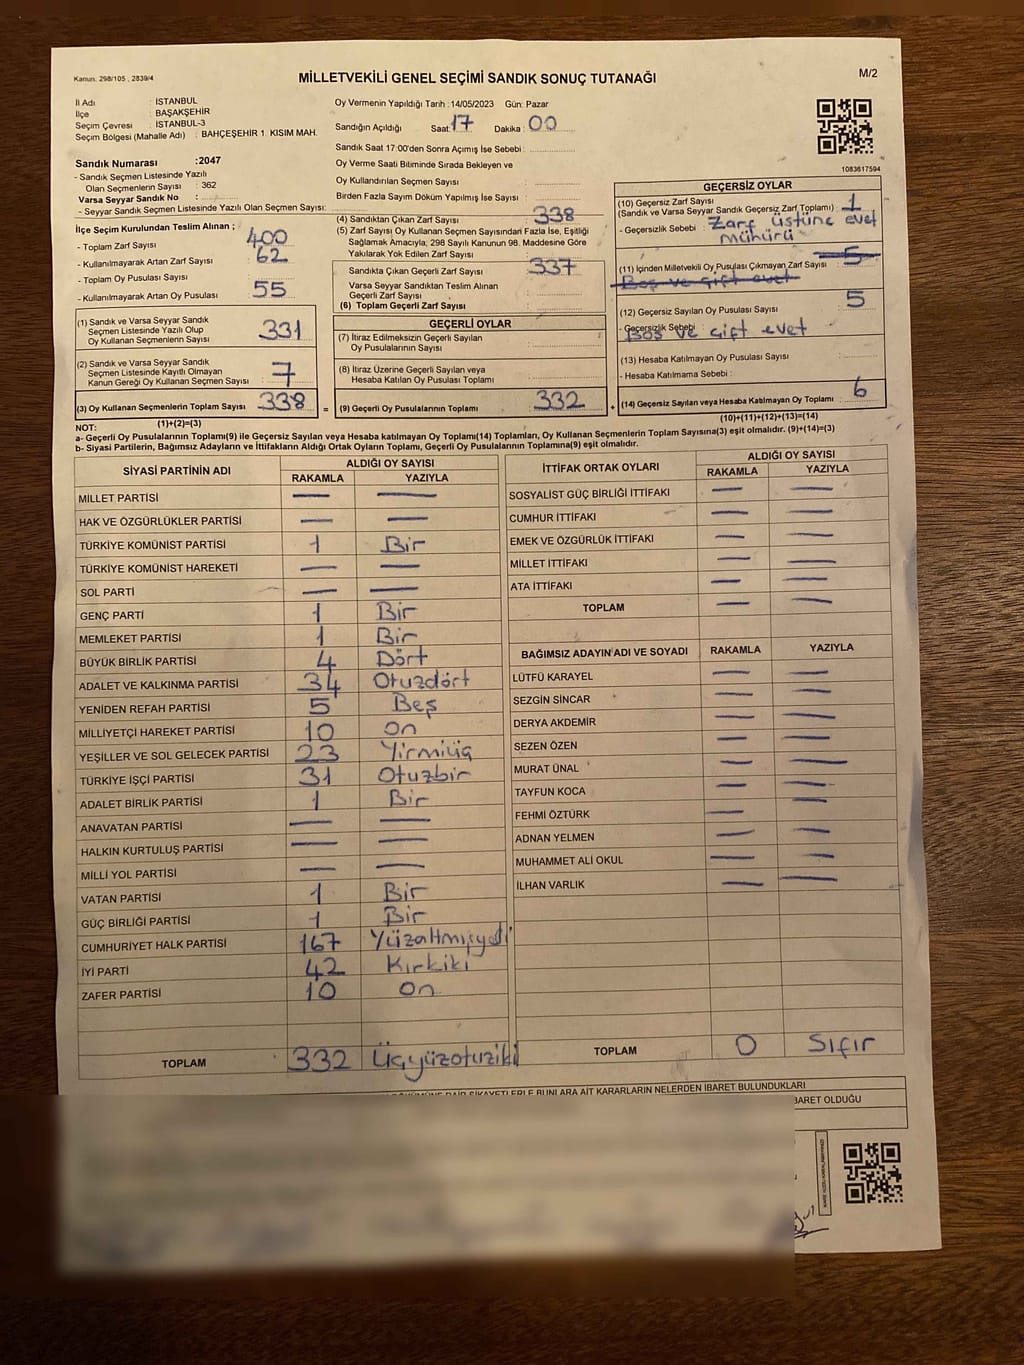 Kanun: 298/105 , 2839/4
MİLLETVEKİLİ GENEL SEÇİMİ SANDIK SONUÇ TUTANAĞI
M/2
İl Adı : İSTANBUL
İlçe : BAŞAKŞEHİR
Seçim Çevresi : İSTANBUL-3
Seçim Bölgesi (Mahalle Adı) : BAHÇEŞEHİR 1. KISIM MAH.
Sandık Numarası :2047
- Sandık Seçmen Listesinde Yazılı
Olan Seçmenlerin Sayısı : 362
Varsa Seyyar Sandık No :
- Seyyar Sandık Seçmen Listesinde Yazılı Olan Seçmen Sayısı:
Oy Vermenin Yapıldığı Tarih :14/05/2023 Gün: Pazar
Sandığın Açıldığı Saat: 17 Dakika : 00
Sandık Saat 17:00'den Sonra Açımış İse Sebebi :
Oy Verme Saati Bitiminde Sırada Bekleyen ve
Oy Kullandırılan Seçmen Sayısı :
Birden Fazla Sayım Döküm Yapılmış İse Sayısı :
1083617594
İlçe Seçim Kurulundan Teslim Alınan ;
- Toplam Zarf Sayısı : 400
- Kullanılmayarak Artan Zarf Sayısı : 62
- Toplam Oy Pusulası Sayısı :
- Kullanılmayarak Artan Oy Pusulası : 55
(1) Sandık ve Varsa Seyyar Sandık
Seçmen Listesinde Yazılı Olup
Oy Kullanan Seçmenlerin Sayısı : 331
(2) Sandık ve Varsa Seyyar Sandık
Seçmen Listesinde Kayıtlı Olmayan
Kanun Gereği Oy Kullanan Seçmen Sayısı : 7
(3) Oy Kullanan Seçmenlerin Toplam Sayısı : 338
(1)+(2)=(3)
(4) Sandıktan Çıkan Zarf Sayısı : 338
(5) Zarf Sayısı Oy Kullanan Seçmen Sayısından Fazla İse, Eşitliği
Sağlamak Amacıyla; 298 Sayılı Kanunun 98. Maddesine Göre
Yakılarak Yok Edilen Zarf Sayısı :
Sandıkta Çıkan Geçerli Zarf Sayısı : 337
Varsa Seyyar Sandıktan Teslim Alınan
Geçerli Zarf Sayısı :
(6) Toplam Geçerli Zarf Sayısı :
GEÇERLİ OYLAR
(7) İtiraz Edilmeksizin Geçerli Sayılan
Oy Pusulalarının Sayısı :
(8) İtiraz Üzerine Geçerli Sayılan veya
Hesaba Katılan Oy Pusulası Toplamı :
= (9) Geçerli Oy Pusulalarının Toplamı : 332
GEÇERSİZ OYLAR
(10) Geçersiz Zarf Sayısı
(Sandık ve Varsa Seyyar Sandık Geçersiz Zarf Toplamı) : 1
- Geçersizlik Sebebi : Zarf üstüne evet
mühürü
(11) İçinden Milletvekili Oy Pusulası Çıkmayan Zarf Sayısı : 5
Boş ve çift evet
(12) Geçersiz Sayılan Oy Pusulası Sayısı : 5
- Geçersizlik Sebebi :
Boş ve çift evet
(13) Hesaba Katılmayan Oy Pusulası Sayısı :
- Hesaba Katılmama Sebebi :
+ (14) Geçersiz Sayılan veya Hesaba Katılmayan Oy Toplamı : 6
(10)+(11)+(12)+(13)=(14)
NOT:
a- Geçerli Oy Pusulalarının Toplamı(9) ile Geçersiz Sayılan veya Hesaba katılmayan Oy Toplamı(14) Toplamları, Oy Kullanan Seçmenlerin Toplam Sayısına(3) eşit olmalıdır. (9)+(14)=(3)
b- Siyasi Partilerin, Bağımsız Adayların ve İttifakların Aldığı Ortak Oyların Toplamı, Geçerli Oy Pusulalarının Toplamına(9) eşit olmalıdır.
SİYASİ PARTİNİN ADI ALDIĞI OY SAYISI
RAKAMLA YAZIYLA
MİLLET PARTİSİ — —
HAK VE ÖZGÜRLÜKLER PARTİSİ — —
TÜRKİYE KOMÜNİST PARTİSİ 1 Bir
TÜRKİYE KOMÜNİST HAREKETİ — —
SOL PARTİ — —
GENÇ PARTİ 1 Bir
MEMLEKET PARTİSİ 1 Bir
BÜYÜK BİRLİK PARTİSİ 4 Dört
ADALET VE KALKINMA PARTİSİ 34 Otuzdört
YENİDEN REFAH PARTİSİ 5 Beş
MİLLİYETÇİ HAREKET PARTİSİ 10 On
YEŞİLLER VE SOL GELECEK PARTİSİ 23 Yirmiüç
TÜRKİYE İŞÇİ PARTİSİ 31 Otuzbir
ADALET BİRLİK PARTİSİ 1 Bir
ANAVATAN PARTİSİ — —
HALKIN KURTULUŞ PARTİSİ — —
MİLLİ YOL PARTİSİ — —
VATAN PARTİSİ 1 Bir
GÜÇ BİRLİĞİ PARTİSİ 1 Bir
CUMHURİYET HALK PARTİSİ 167 Yüzaltmışyedi
İYİ PARTİ 42 Kırkiki
ZAFER PARTİSİ 10 On
TOPLAM 332 Üçyüzotuziki
İTTİFAK ORTAK OYLARI ALDIĞI OY SAYISI
RAKAMLA YAZIYLA
SOSYALİST GÜÇ BİRLİĞİ İTTİFAKI — —
CUMHUR İTTİFAKI — —
EMEK VE ÖZGÜRLÜK İTTİFAKI — —
MİLLET İTTİFAKI — —
ATA İTTİFAKI — —
TOPLAM — —
BAĞIMSIZ ADAYIN ADI VE SOYADI RAKAMLA YAZIYLA
LÜTFÜ KARAYEL — —
SEZGİN SİNCAR — —
DERYA AKDEMİR — —
SEZEN ÖZEN — —
MURAT ÜNAL — —
TAYFUN KOCA — —
FEHMİ ÖZTÜRK — —
ADNAN YELMEN — —
MUHAMMET ALİ OKUL — —
İLHAN VARLIK — —
TOPLAM 0 Sıfır
ŞİKAYETLERLE BUNLARA AİT KARARLARIN NELERDEN İBARET BULUNDUKLARI
İBARET OLDUĞU